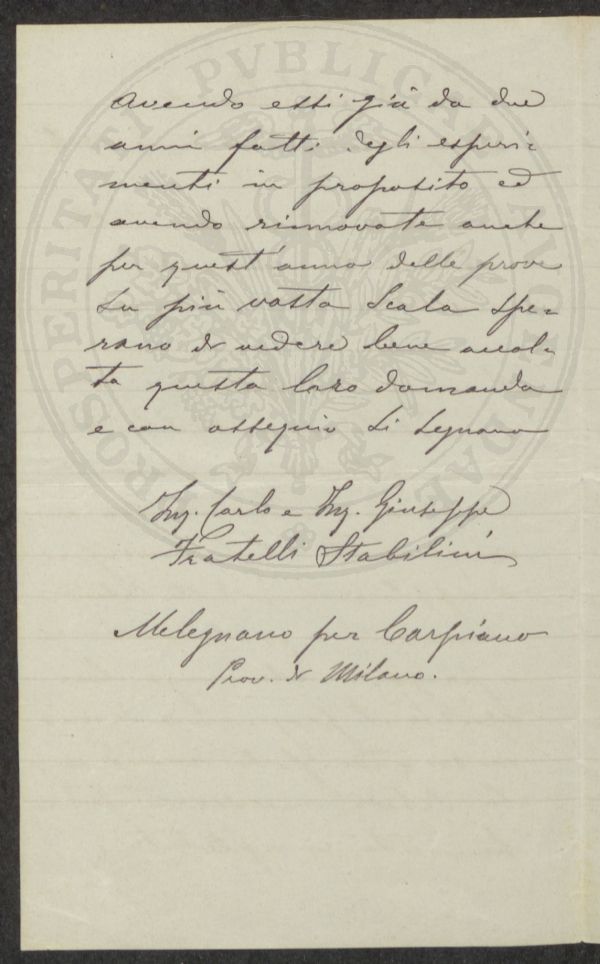 PROSPERITATI PVBLICAE AVGENDAE
avendo essi già da due
anni fatti degli esperi-
menti in proposito ed
avendo rinnovate anche
per quest'anno delle prove
su più vasta scala spe-
rano di vedere bene accol-
ta questa loro domanda
e con ossequio si segnano
Ing. Carlo e Ing. Giuseppe
Fratelli Stabilini
Melegnano per Carpiano
Prov. di Milano.